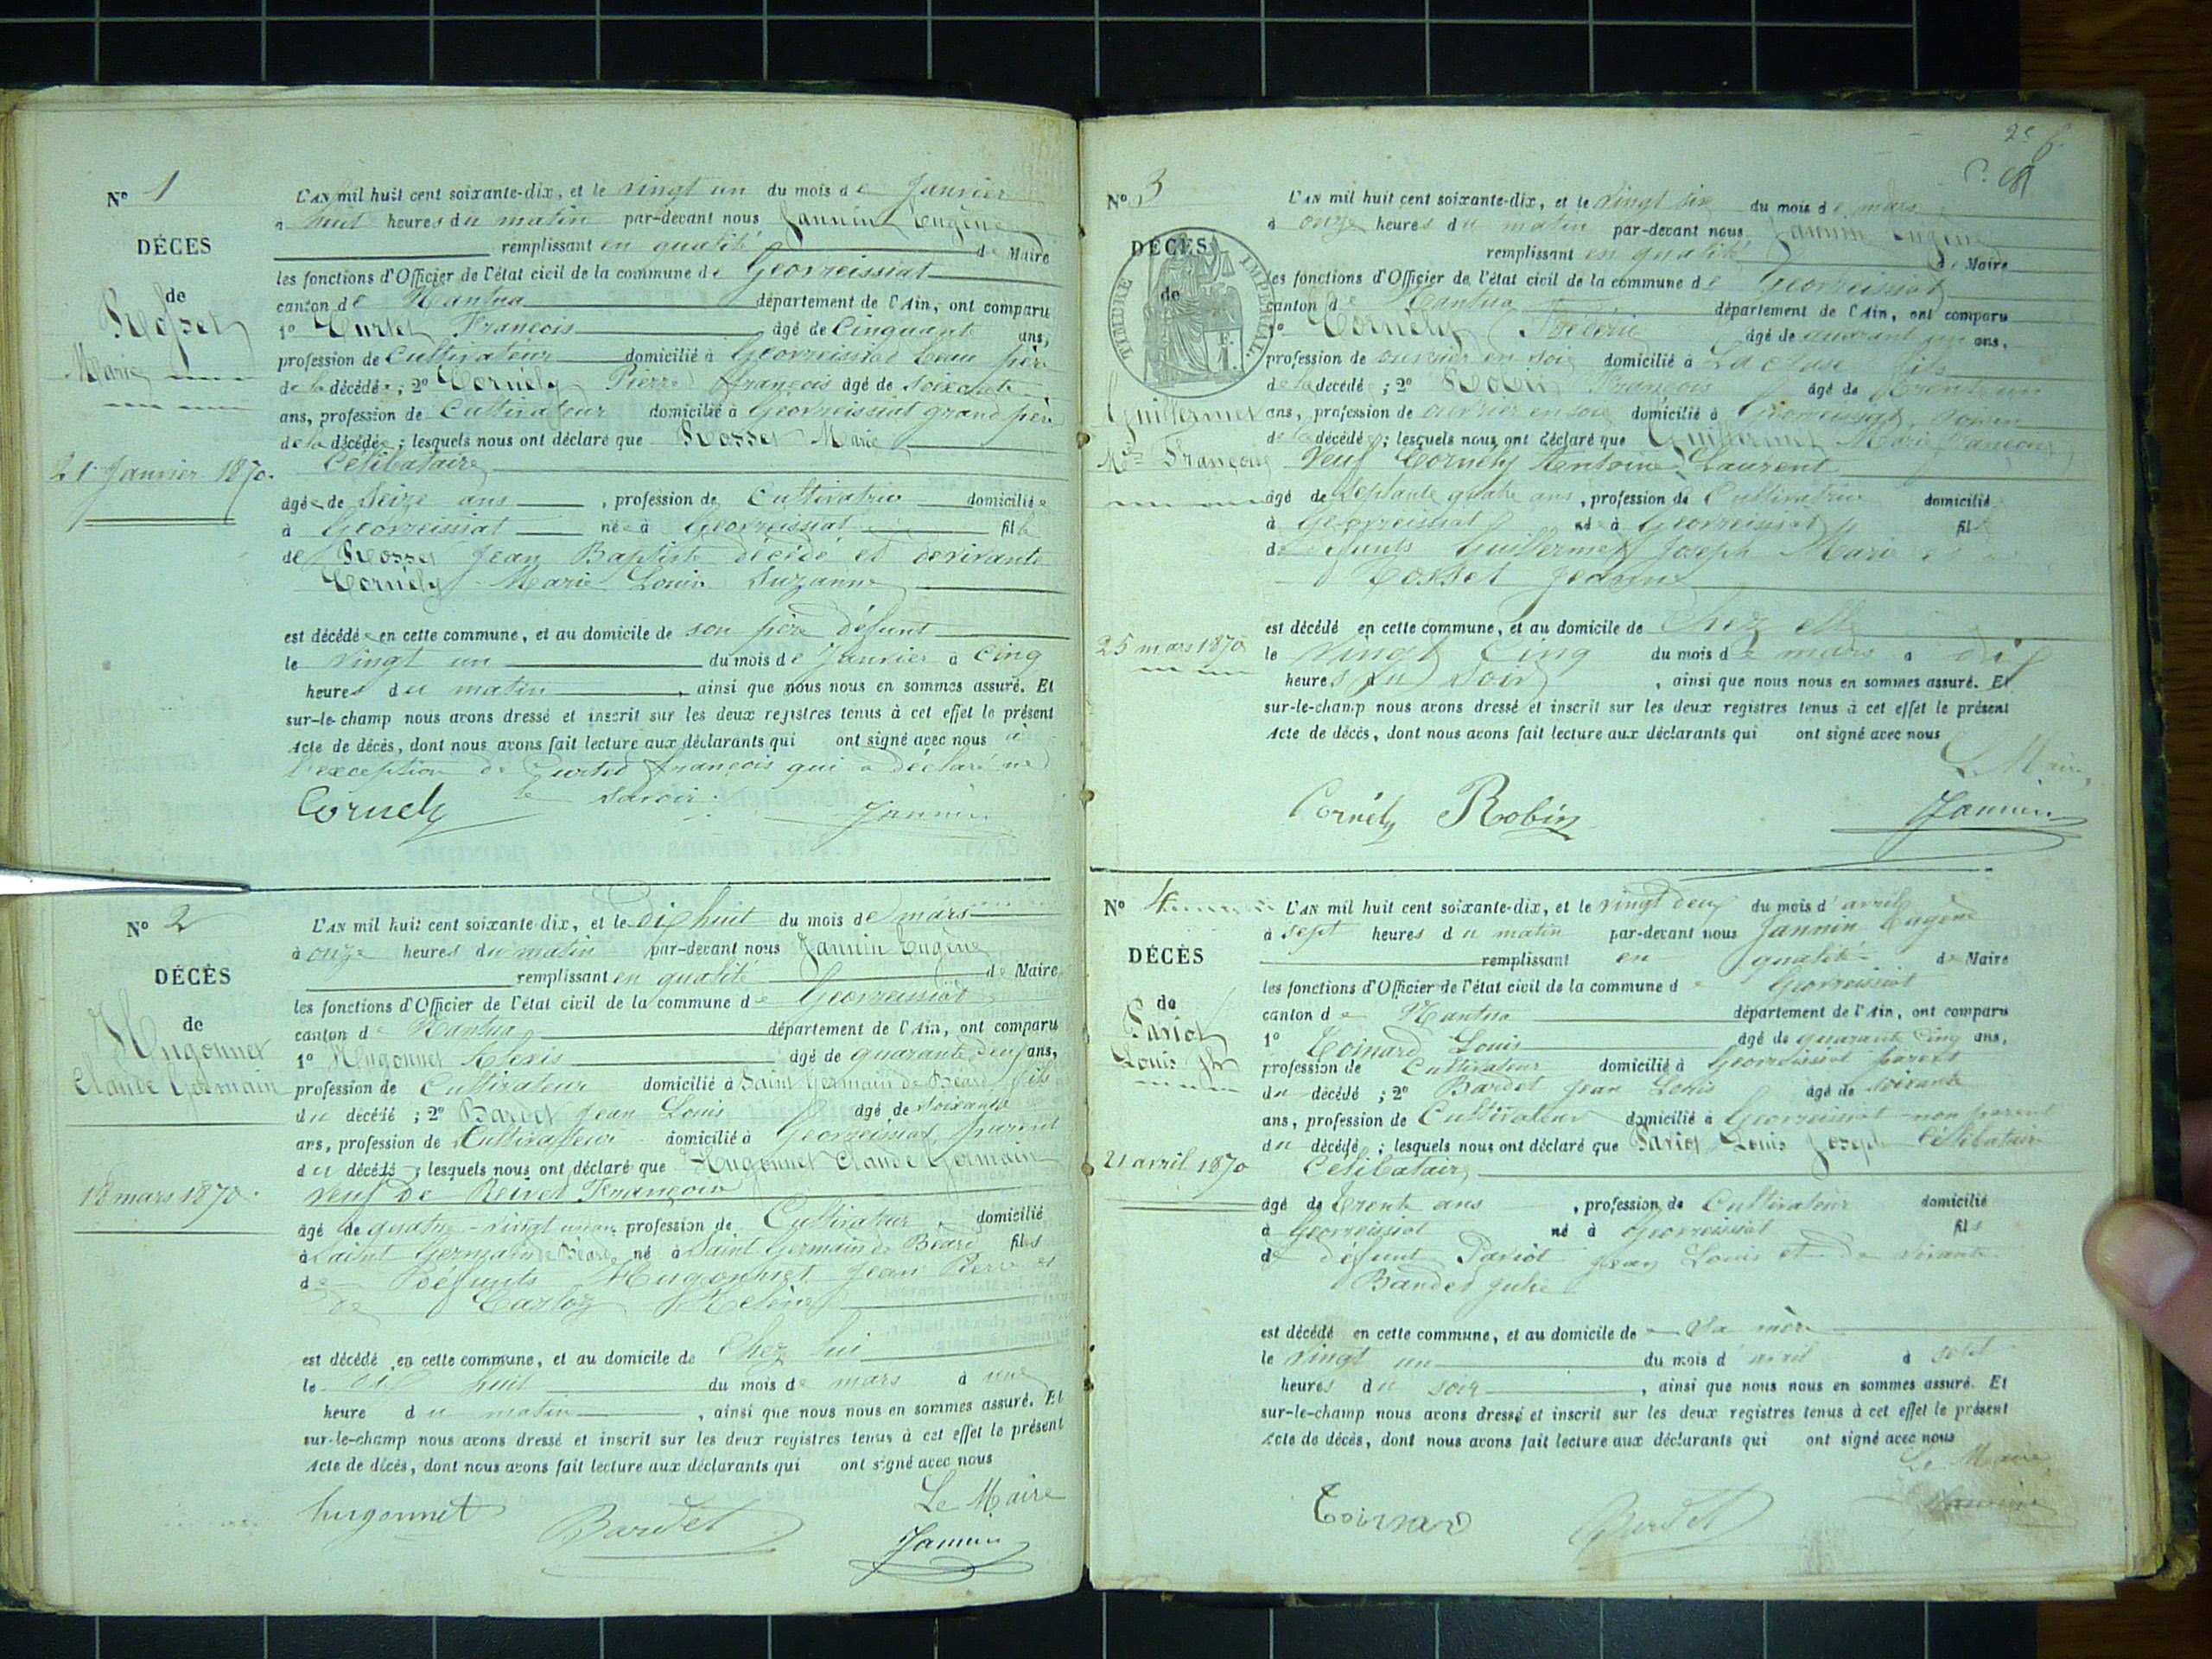 Nº 1
DÉCES
de
Rosset
Marie
21 Janvier 1870.
L'AN mil huit cent soixante-dix, et le vingt un du mois de Janvier
à huit heures du matin par-devant nous Jannin Eugène
remplissant en qualité de Maire
les fonctions d'Officier de l'état civil de la commune de Géovreissiat
canton de Nantua département de l'Ain, ont comparu
1º Curtet François âgé de Cinquante ans,
profession de Cultivateur domicilié à Géovreissiat beau père
de la décédée; 2º Cornély Pierre François âgé de soixante
ans, profession de Cultivateur domicilié à Géovreissiat grand père
de la décédée; lesquels nous ont déclaré que Rosset Marie
Célibataire
âgée de Seize ans, profession de Cultivatrice domiciliée
à Géovreissiat née à Géovreissiat fille
de Rosset Jean Baptiste décédé et de vivante
Cornély Marie Louise Suzanne
est décédée en cette commune, et au domicile de son père défunt
le vingt un du mois de Janvier à Cinq
heures du matin, ainsi que nous nous en sommes assuré. Et
sur-le-champ nous avons dressé et inscrit sur les deux registres tenus à cet effet le présent
Acte de décès, dont nous avons fait lecture aux déclarants qui ont signé avec nous à
l'exception de Curtet François qui a déclaré ne
le savoir.
Cornely Jannin
Nº 2
DÉCÈS
de
Hugonnet
Claude Germain
18 mars 1870.
L'AN mil huit cent soixante-dix, et le dix huit du mois de mars
à onze heures du matin par-devant nous Jannin Eugène
remplissant en qualité de Maire
les fonctions d'Officier de l'état civil de la commune de Géovreissiat
canton de Nantua département de l'Ain, ont comparu
1º Hugonnet Alexis âgé de quarante deux ans,
profession de Cultivateur domicilié à Saint Germain de Béard fils
du décédé; 2º Bardet Jean Louis âgé de soixante
ans, profession de Cultivateur domicilié à Géovreissiat parent
du décédé; lesquels nous ont déclaré que Hugonnet Claude Germain
veuf de Reivet Françoise
âgé de quatre-vingt un ans, profession de Cultivateur domicilié
à Saint Germain de Béard né à Saint Germain de Béard fils
de Défunts Hugonnet Jean Pierre et
de Carloz Hélène
est décédé en cette commune, et au domicile de Chez lui
le dix huit du mois de mars à une
heure du matin, ainsi que nous nous en sommes assuré. Et
sur-le-champ nous avons dressé et inscrit sur les deux registres tenus à cet effet le présent
Acte de décès, dont nous avons fait lecture aux déclarants qui ont signé avec nous
Le Maire
hugonnet Bardet Jannin
2e 6.
Nº 3
DÉCÈS
de
TIMBRE IMPÉRIAL.
Guillermet
Mie Françoise
25 mars 1870
L'AN mil huit cent soixante-dix, et le vingt six du mois de mars
à onze heures du matin par-devant nous Jannin Eugène
remplissant en qualité de Maire
les fonctions d'Officier de l'état civil de la commune de Géovreissiat
canton de Nantua département de l'Ain, ont comparu
1º Cornély Frédéric âgé de quarant un ans,
profession de ouvrier en soie domicilié à La cluse fils
de la décédé; 2º Robin François âgé de trente un
ans, profession de ouvrier en soie domicilié à Géovreissiat, voisin
de la décédé; lesquels nous ont déclaré que Guillermet Marie Françoise
Veuf Cornély Antoine Laurent
âgé de septante quatre ans, profession de Cultivatrice domicilié
à Géovreissiat né à Géovreissiat fille
de défunts Guillermet Joseph Marie et
Rosset Jeanne
est décédé en cette commune, et au domicile de Chez elle
le vingt Cinq du mois de mars à dix
heures du Soir, ainsi que nous nous en sommes assuré. Et
sur-le-champ nous avons dressé et inscrit sur les deux registres tenus à cet effet le présent
Acte de décès, dont nous avons fait lecture aux déclarants qui ont signé avec nous
Le Maire,
Cornély Robin Jannin
Nº 4
DÉCÈS
de
Pariot
Louis Jh
21 avril 1870
L'AN mil huit cent soixante-dix, et le vingt deux du mois d'avril
à sept heures du matin par-devant nous Jannin Eugène
remplissant en qualité de Maire
les fonctions d'Officier de l'état civil de la commune de Géovreissiat
canton de Nantua département de l'Ain, ont comparu
1º Toinard Louis âgé de quarante Cinq ans,
profession de Cultivateur domicilié à Géovreissiat parent
du décédé; 2º Bardet Jean Louis âgé de soixante
ans, profession de Cultivateur domicilié à Géovreissiat non parent
du décédé; lesquels nous ont déclaré que Pariot Louis Joseph Célibataire
Célibataire
âgé de trente ans, profession de Cultivateur domicilié
à Géovreissiat né à Géovreissiat fils
de défunt Pariot Jean Louis et de vivante
Bandet Julie
est décédé en cette commune, et au domicile de Sa mère
le vingt un du mois d'avril à sept
heures du soir, ainsi que nous nous en sommes assuré. Et
sur-le-champ nous avons dressé et inscrit sur les deux registres tenus à cet effet le présent
Acte de décès, dont nous avons fait lecture aux déclarants qui ont signé avec nous
Le Maire
Toinard Bardet Jannin